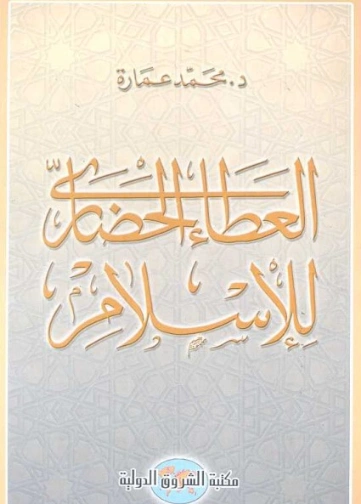 د. محمد عمارة
العطاء الحضاري
للإسلام
مكتبة الشروق الدولية